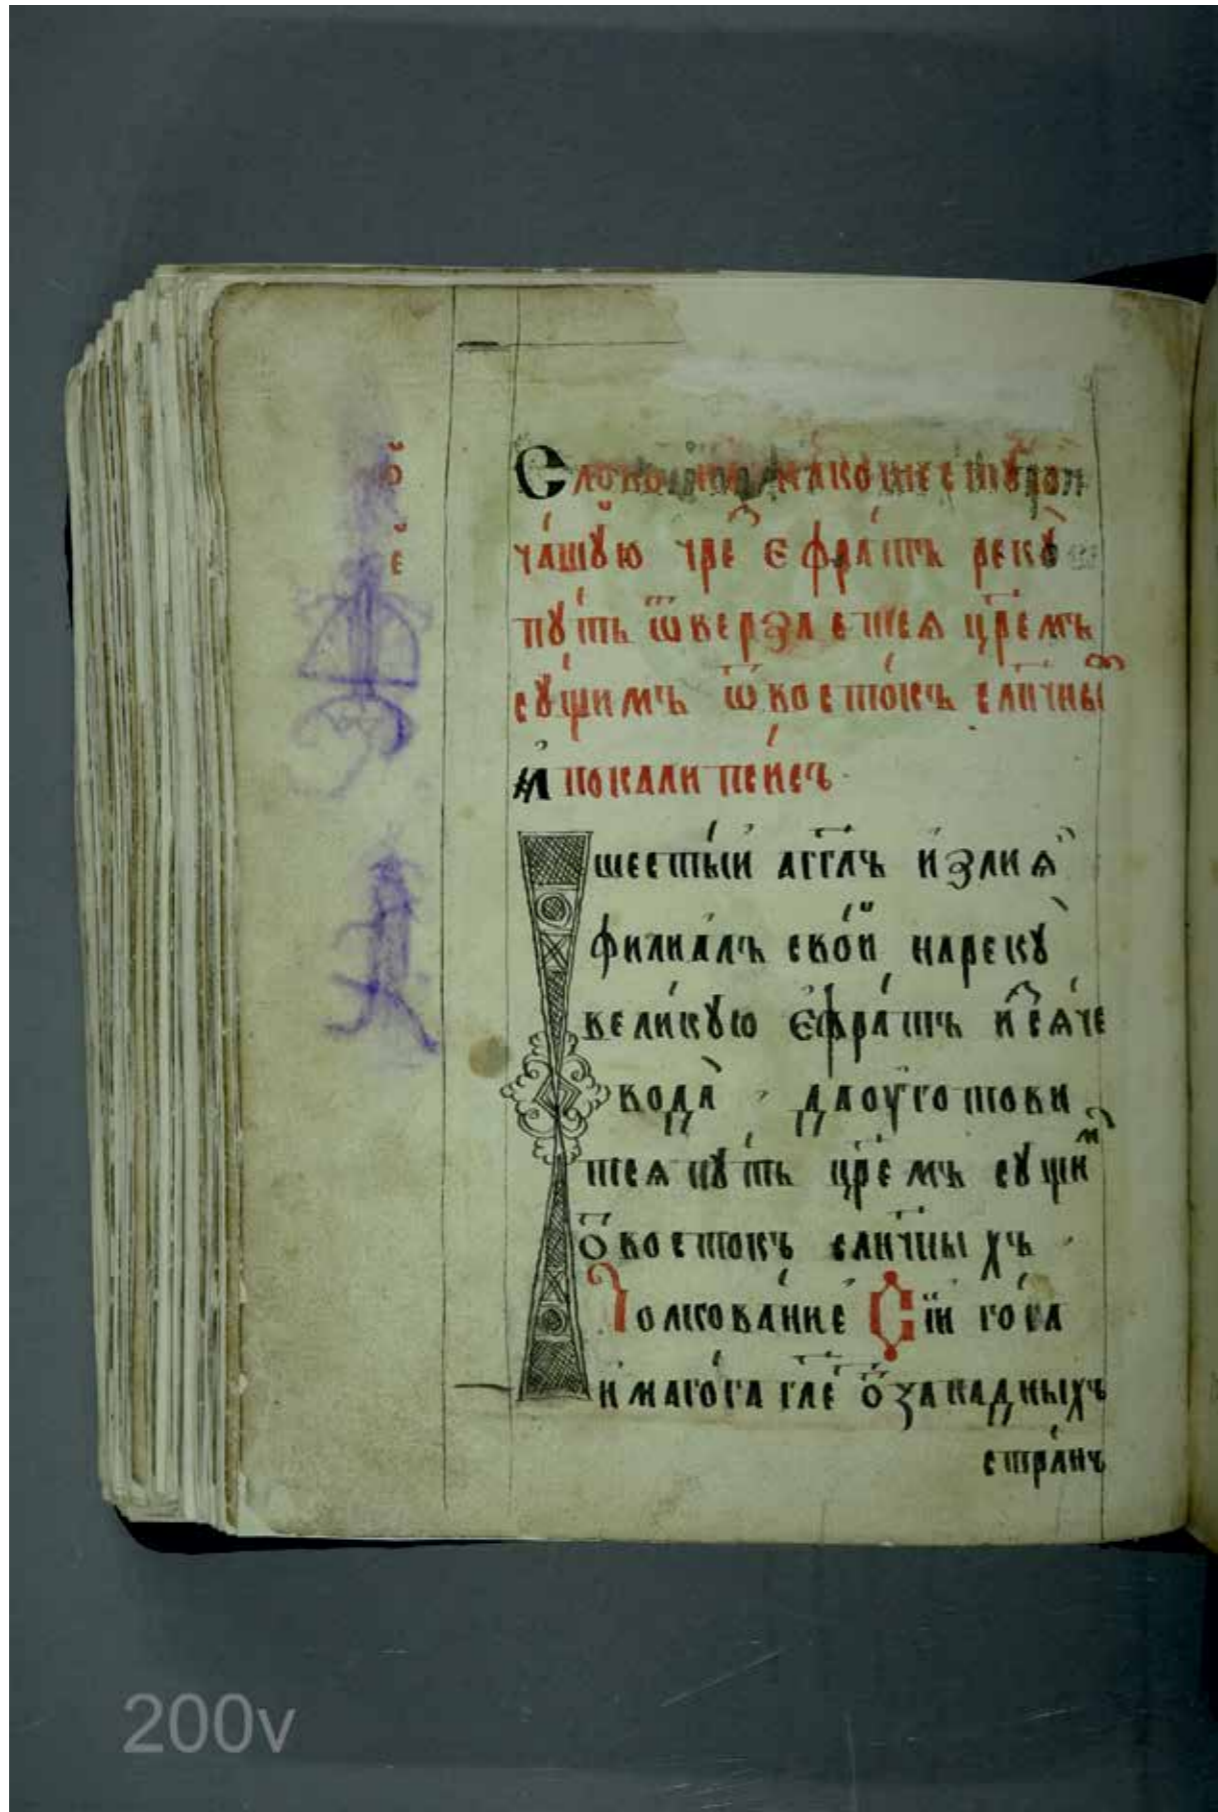 о҃
е҃
ча́шꙋю чре є҆фра́тъ рекꙋ̀
пꙋ́ть ѿверзаетсѧ цр҃емъ
сꙋ́щимъ ѿ восто́къ сл҃нчны
А҆покали́псисъ
шесты́й аг҃глъ и҆злиѧ̀
фиꙗлъ сво́й нарекꙋ̀
вели́кꙋю є҆фра́тъ и҆сѧ́че
вода̀ · даоугото́ви
тсѧ пꙋ́ть цр҃емъ сꙋщи
ѿ востокъ сл҃нчныхъ
Толкова́нїе Сїи го́га
и҆ маго́га гл҃е ѿ западныхъ
стра́нъ
200v